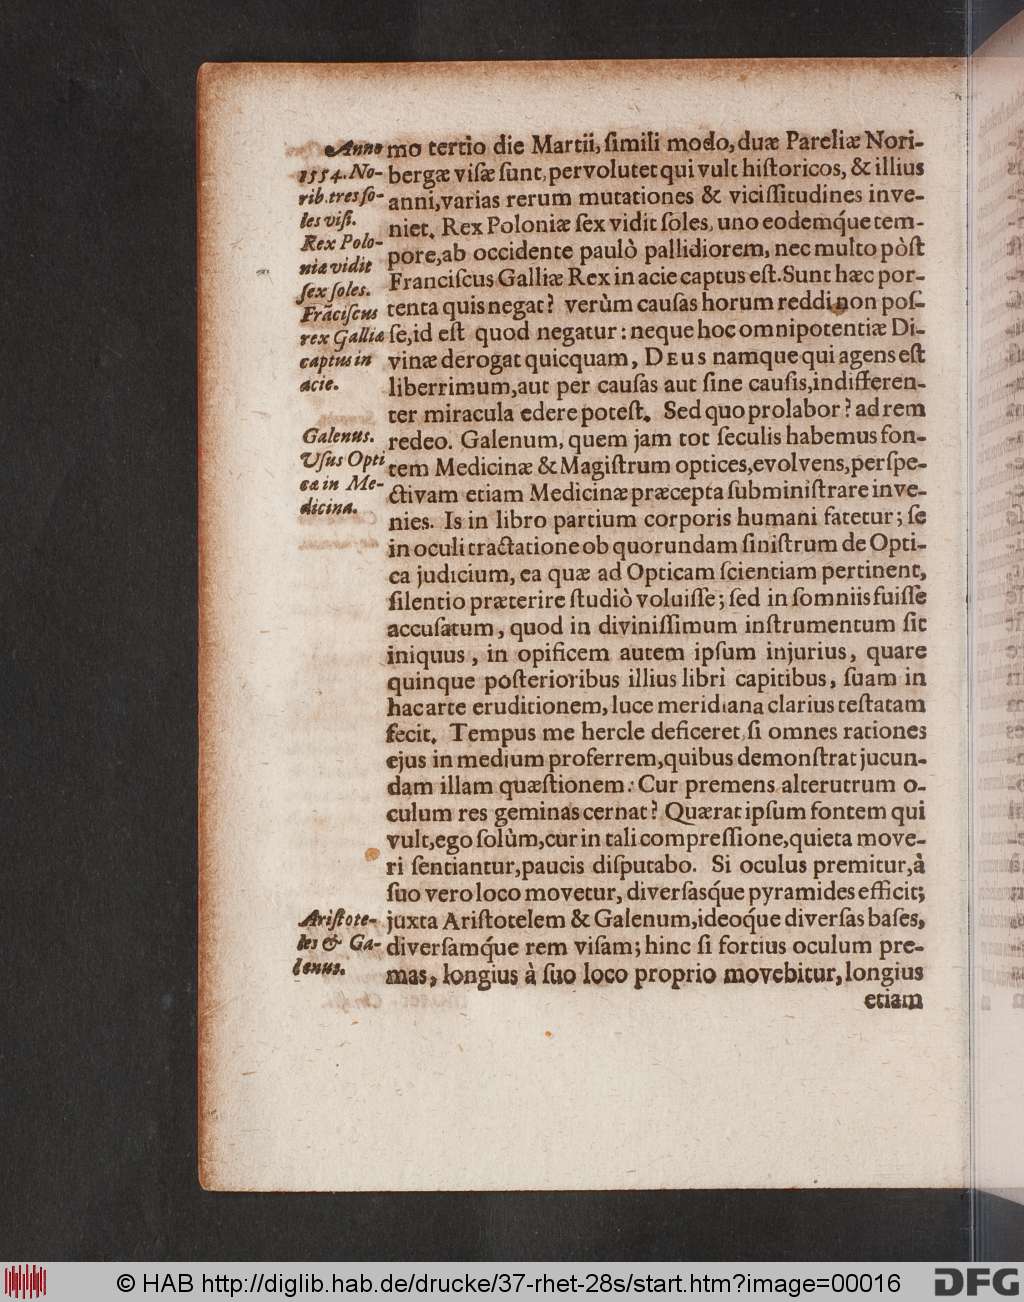 Anno
1554. No-
rib. tres ſo-
les viſi.
Rex Polo-
nia vidit
ſex ſoles.
Frãciſcus
rex Gallia
captus in
acie.
Galenus.
Uſus Opti
ca in Me-
dicina.
Ariſtote-
les & Ga-
lenus.
mo tertio die Martii, ſimili modo, duæ Pareliæ Nori-
bergæ viſæ ſunt, pervolutet qui vult hiſtoricos, & illius
anni, varias rerum mutationes & viciſſitudines inve-
niet. Rex Poloniæ ſex vidit ſoles, uno eodemq́ue tem-
pore, ab occidente paulò pallidiorem, nec multo pòſt
Franciſcus Galliæ Rex in acie captus eſt. Sunt hæc por-
tenta quis negat? verùm cauſas horum reddi non poſ-
ſe, id eſt quod negatur: neque hoc omnipotentiæ Di-
vinæ derogat quicquam, DEUS namque qui agens eſt
liberrimum, aut per cauſas aut ſine cauſis, indifferen-
ter miracula edere poteſt. Sed quo prolabor? ad rem
redeo. Galenum, quem jam tot ſeculis habemus fon-
tem Medicinæ & Magiſtrum optices, evolvens, perſpe-
ctivam etiam Medicinæ præcepta ſubminiſtrare inve-
nies. Is in libro partium corporis humani fatetur; ſe
in oculi tractatione ob quorundam ſiniſtrum de Opti-
ca judicium, ea quæ ad Opticam ſcientiam pertinent,
ſilentio præterire ſtudiò voluiſſe; ſed in ſomniis fuiſſe
accuſatum, quod in diviniſſimum inſtrumentum ſit
iniquus, in opificem autem ipſum injurius, quare
quinque poſterioribus illius libri capitibus, ſuam in
hac arte eruditionem, luce meridiana clarius teſtatam
fecit. Tempus me hercle deficeret, ſi omnes rationes
ejus in medium proferrem, quibus demonſtrat jucun-
dam illam quæſtionem: Cur premens alterutrum o-
culum res geminas cernat? Quærat ipſum fontem qui
vult, ego ſolùm, cur in tali compreſſione, quieta move-
ri ſentiantur, paucis diſputabo. Si oculus premitur, à
ſuo vero loco movetur, diverſasq́ue pyramides efficit;
juxta Ariſtotelem & Galenum, ideoq́ue diverſas baſes,
diverſamq́ue rem viſam; hinc ſi fortius oculum pre-
mas, longius à ſuo loco proprio movebitur, longius
etiam
© HAB http://diglib.hab.de/drucke/37-rhet-28s/start.htm?image=00016
DFG